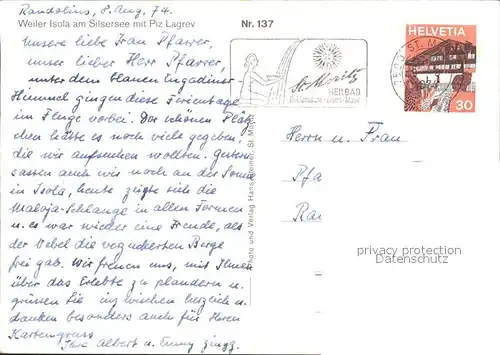 Randolins, 8. Aug. 74.
Weiler Isola am Silsersee mit Piz Lagrev
Nr. 137
Unsere liebe Frau Pfarrer,
unser lieber Herr Pfarrer,
unter dem blauen Engadiner-
Himmel gingen diese Ferientage
im Fluge vorbei. Der schönen Plätz-
chen hätte es noch viele gegeben,
die wir aufsuchen wollten. Gestern
sassen auch wir noch an der Sonne
in Isola, heute zeigte sich die
Maloja-Schlange in allen Formen
u. es war wieder eine Freude, als
der Nebel die Berge
frei gab. Wir freuen uns, mit Ihnen
über das Erlebte zu plaudern u.
grüssen Sie inzwischen herzlich u.
danken besonders auch für Ihren
Kartengruss
Ihre Albert u. Emmy Zingg.
Photo und Verlag Hans St. Moritz
St. Moritz
HEILBAD
HELVETIA
30
Herrn u. Frau
Pfa
Ra
privacy protection
Datenschutz